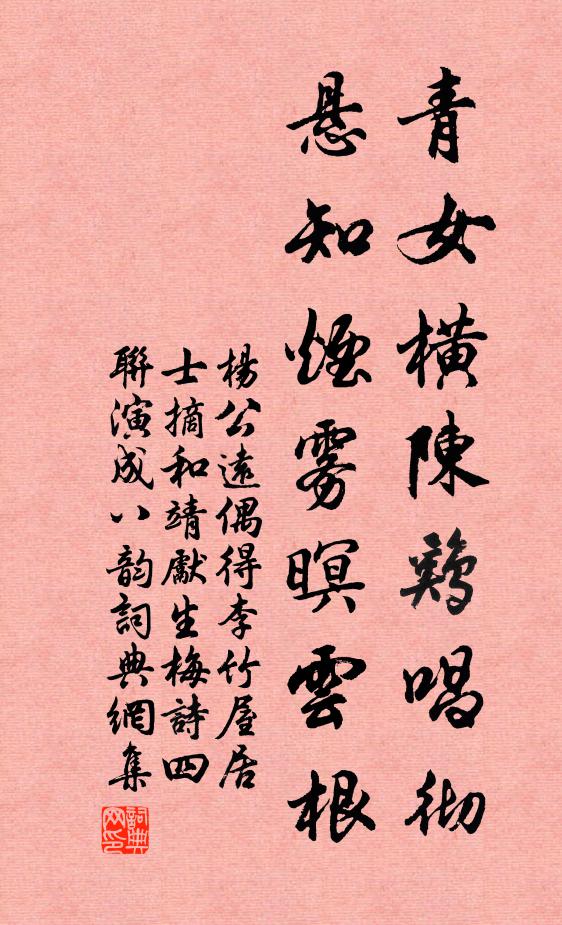 青女橫陳鷄唱彻
悬知煙雾暝雲根
楊公遠偶得李竹屋居
士摘和靖獻生梅詩四
聯演成八韵詞典網集
詞典
网印